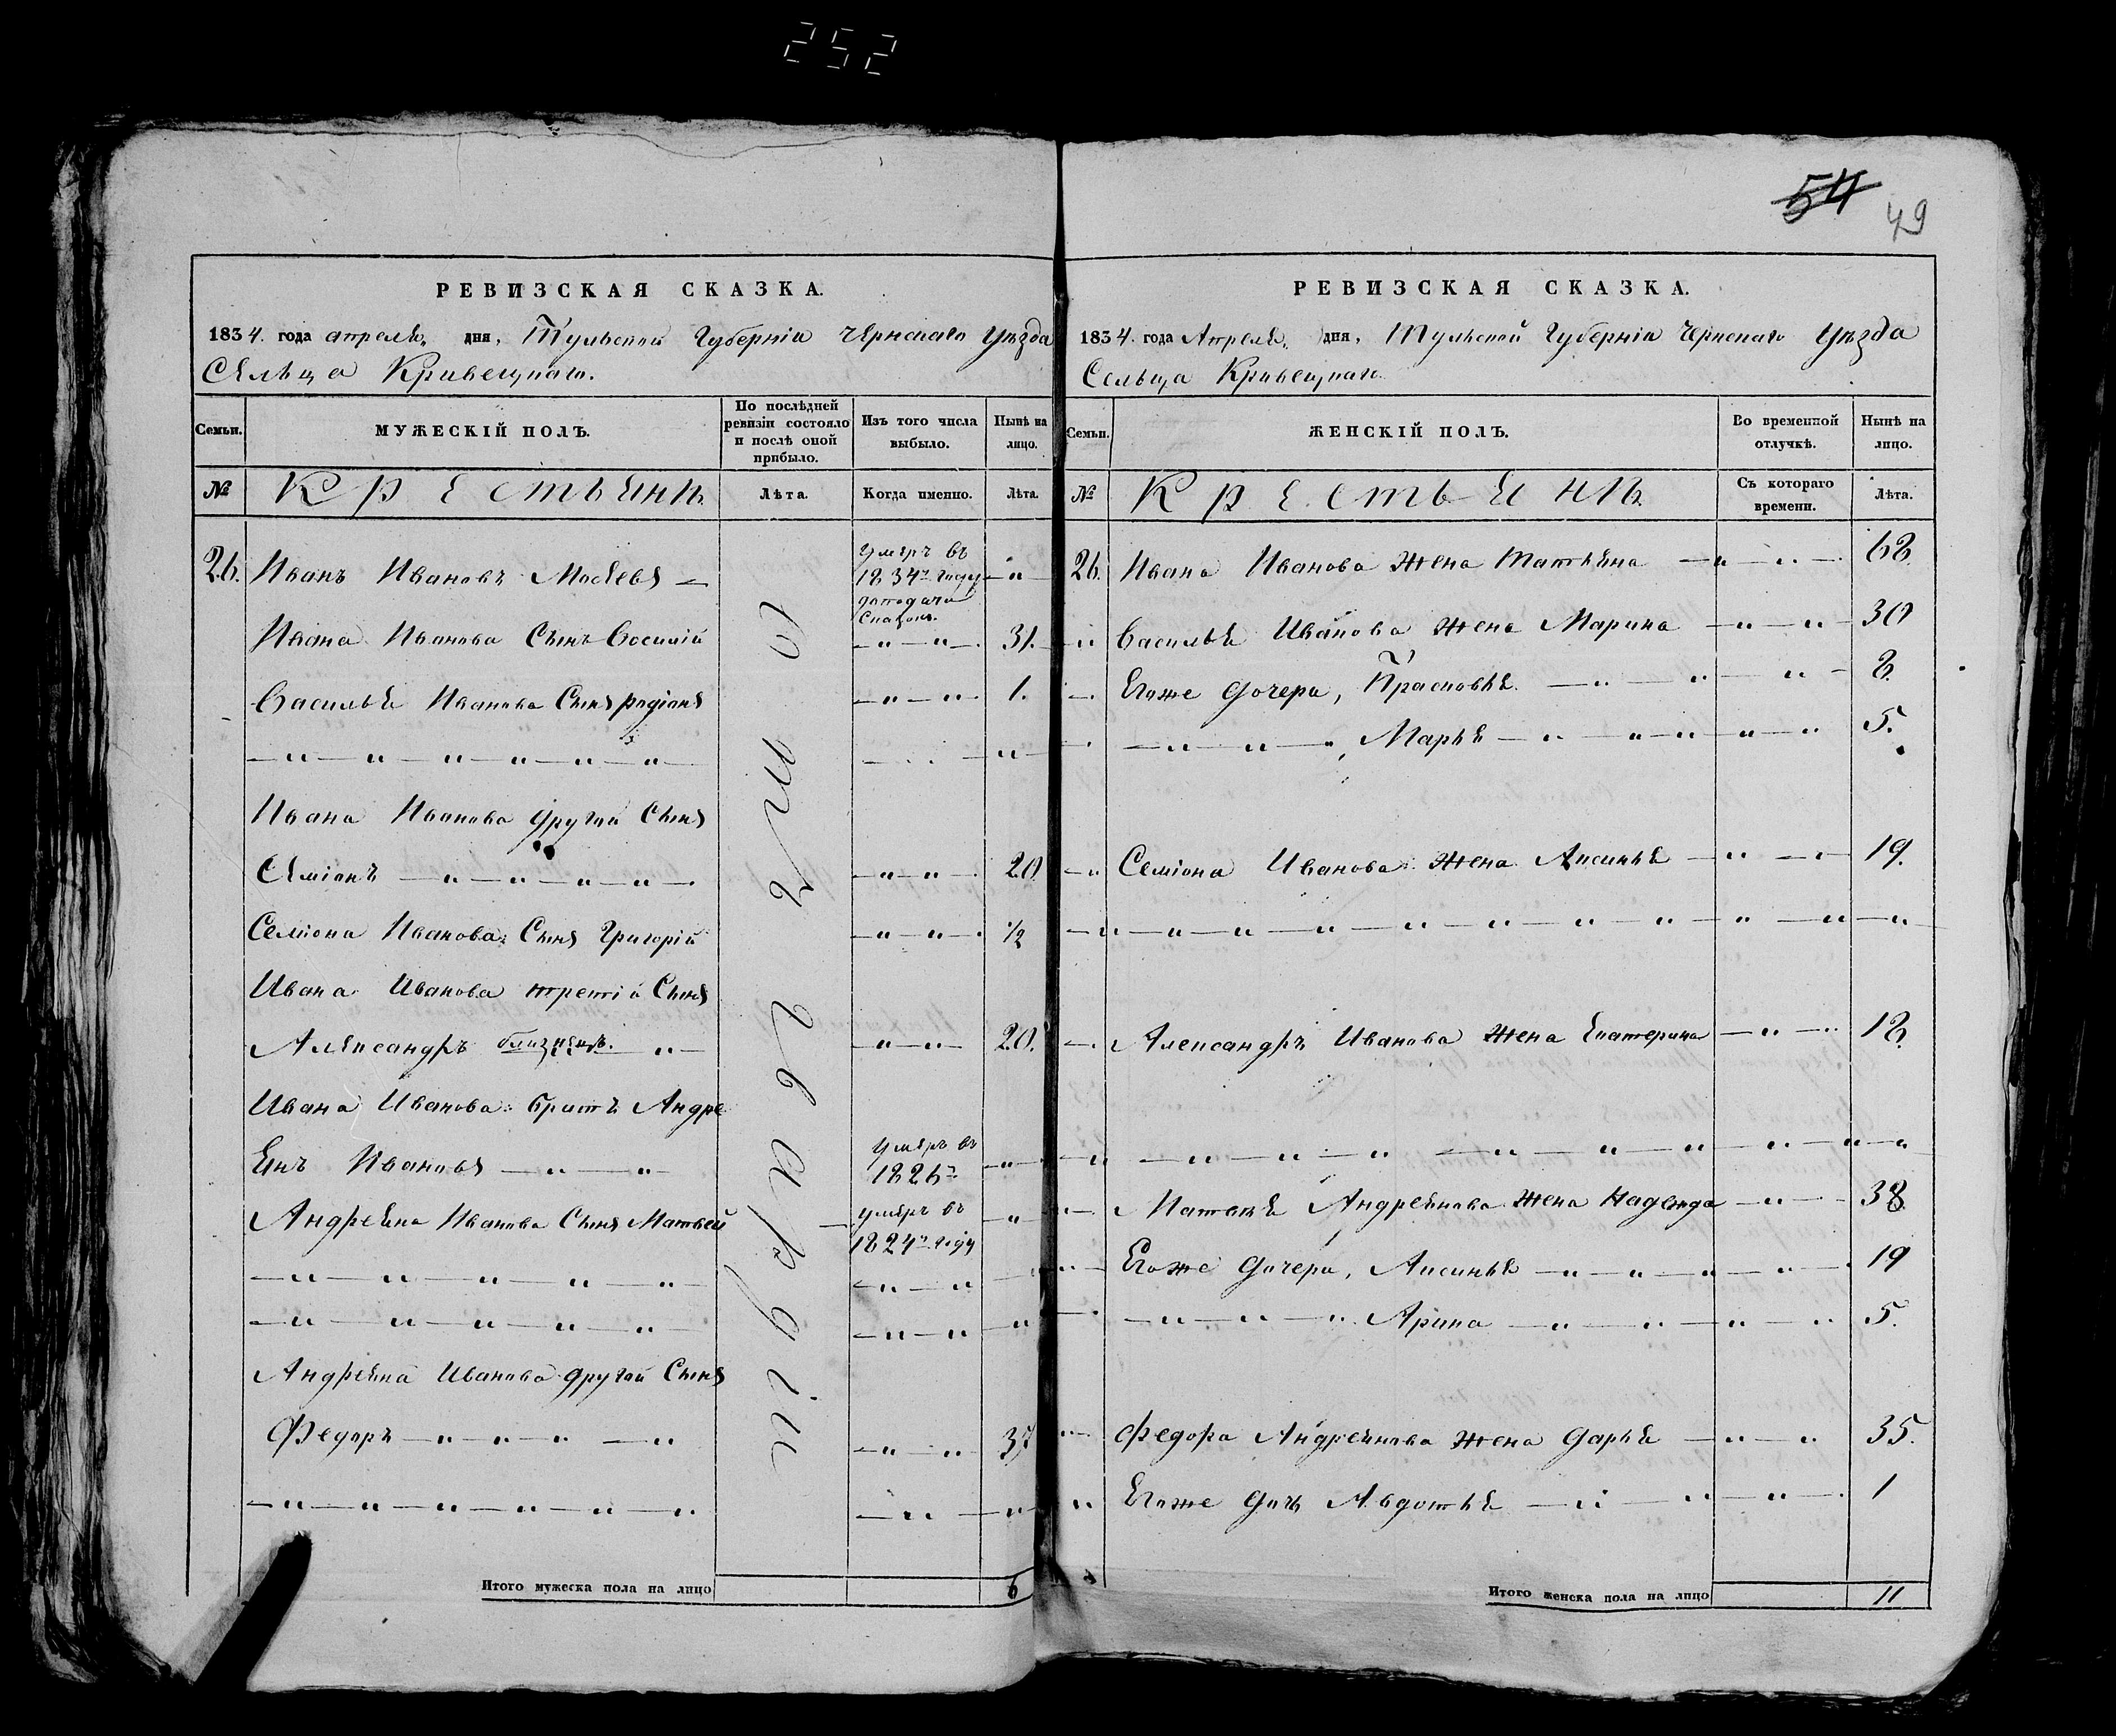 252
54
49
РЕВИЗСКАЯ СКАЗКА.
1834. года апреля дня, Тульской Губерніи Чернскаго Уѣзда
Сельца Кривецкаго.
Семьи.
МУЖЕСКІЙ ПОЛЪ.
По послѣдней ревизіи состояло и послѣ оной прибыло.
Изъ того числа выбыло.
Нынѣ на лицо.
№
Крестьянъ
Лѣта.
Когда именно.
Лѣта.
26. Иванъ Ивановъ — умеръ въ 1834м году до подачи сказокъ. — " —
Ивана Иванова Сынъ Василій — " — " — 31.
Василья Иванова Сынъ Родіонъ — " — " — 1.
— " — " — " — " — " — " —
Ивана Иванова другой Сынъ
Семіонъ — " — " — " — " — . — " — " — 20
Семіона Иванова Сынъ Григорій — " — " — ½
Ивана Иванова третій Сынъ
Александръ близнецъ. — " — — " — " — 20.
Ивана Иванова братъ Андре
янъ Ивановъ — " — " — умеръ въ 1826м — " —
Андреяна Иванова Сынъ Матвей — умеръ въ 1824м году — "
— " — " — " — " — " — — " — "
— " — " — " — " — " — " — " — "
Андреяна Иванова другой Сынъ
Федоръ — " — " — " — " — " — " 37
— " — " — " — " — " — " — " — "
Итого мужеска пола на лицо 6
РЕВИЗСКАЯ СКАЗКА.
1834. года Апреля дня, Тульской Губерніи Чернскаго Уѣзда
Сельца Кривецкаго
Семьи.
ЖЕНСКІЙ ПОЛЪ.
Во временной отлучкѣ.
Нынѣ на лицо.
№
Крестьянъ
Съ котораго времени.
Лѣта.
26. Ивана Иванова жена Татьяна — " — " — 68
" Василья Иванова жена Марина — " — " — 30
Егоже дочери, Прасковья — " — " — " — 8
— " — " — ", Марья — " — " — " — " — " 5.
— " Семіона Иванова жена Аксинья — " — " — 19.
— " — " — " — " — " — " — " — " — " — " — " — "
Александръ Иванова жена Екатерина — " — " 18
" — " — " — " — " — " — " — " — " — "
Матвея Андреянова жена Надежда — " — 38
Егоже дочери, Аксинья — " — " — " — " — 19
— " — " — " Арина — " — " — " — " 5.
Федора Андреянова жена Дарья — " — " 35.
" Егоже дочь Авдотья — " — " — " — 1
Итого женска пола на лицо 11